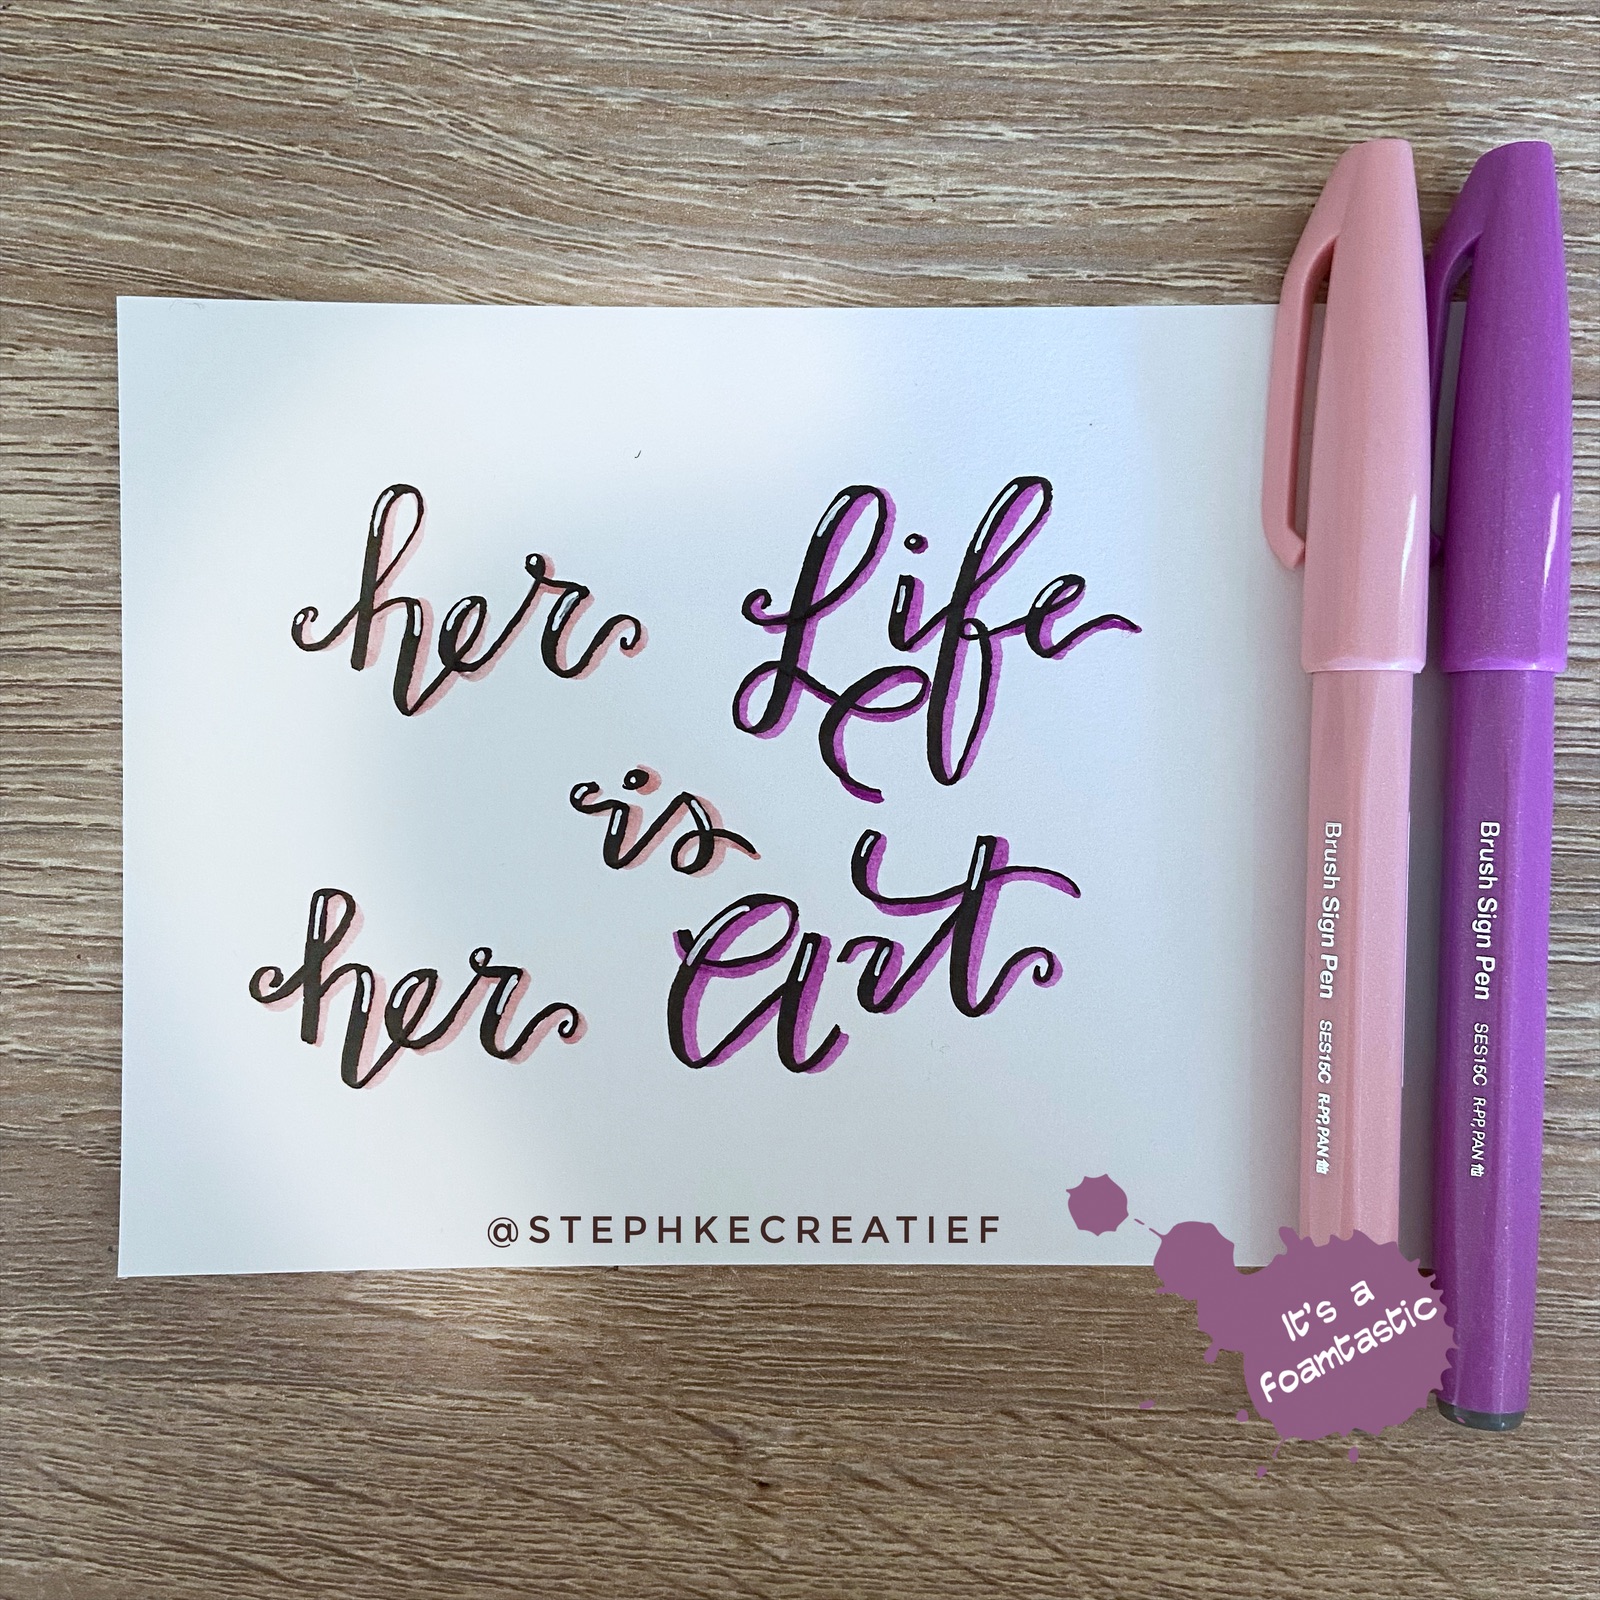 her Life
is
her Art
@STEPHKECREATIEF
Brush Sign Pen SES15C R-PP,PAN 他
Brush Sign Pen SES15C R-PP,PAN 他
It's a
foamtastic